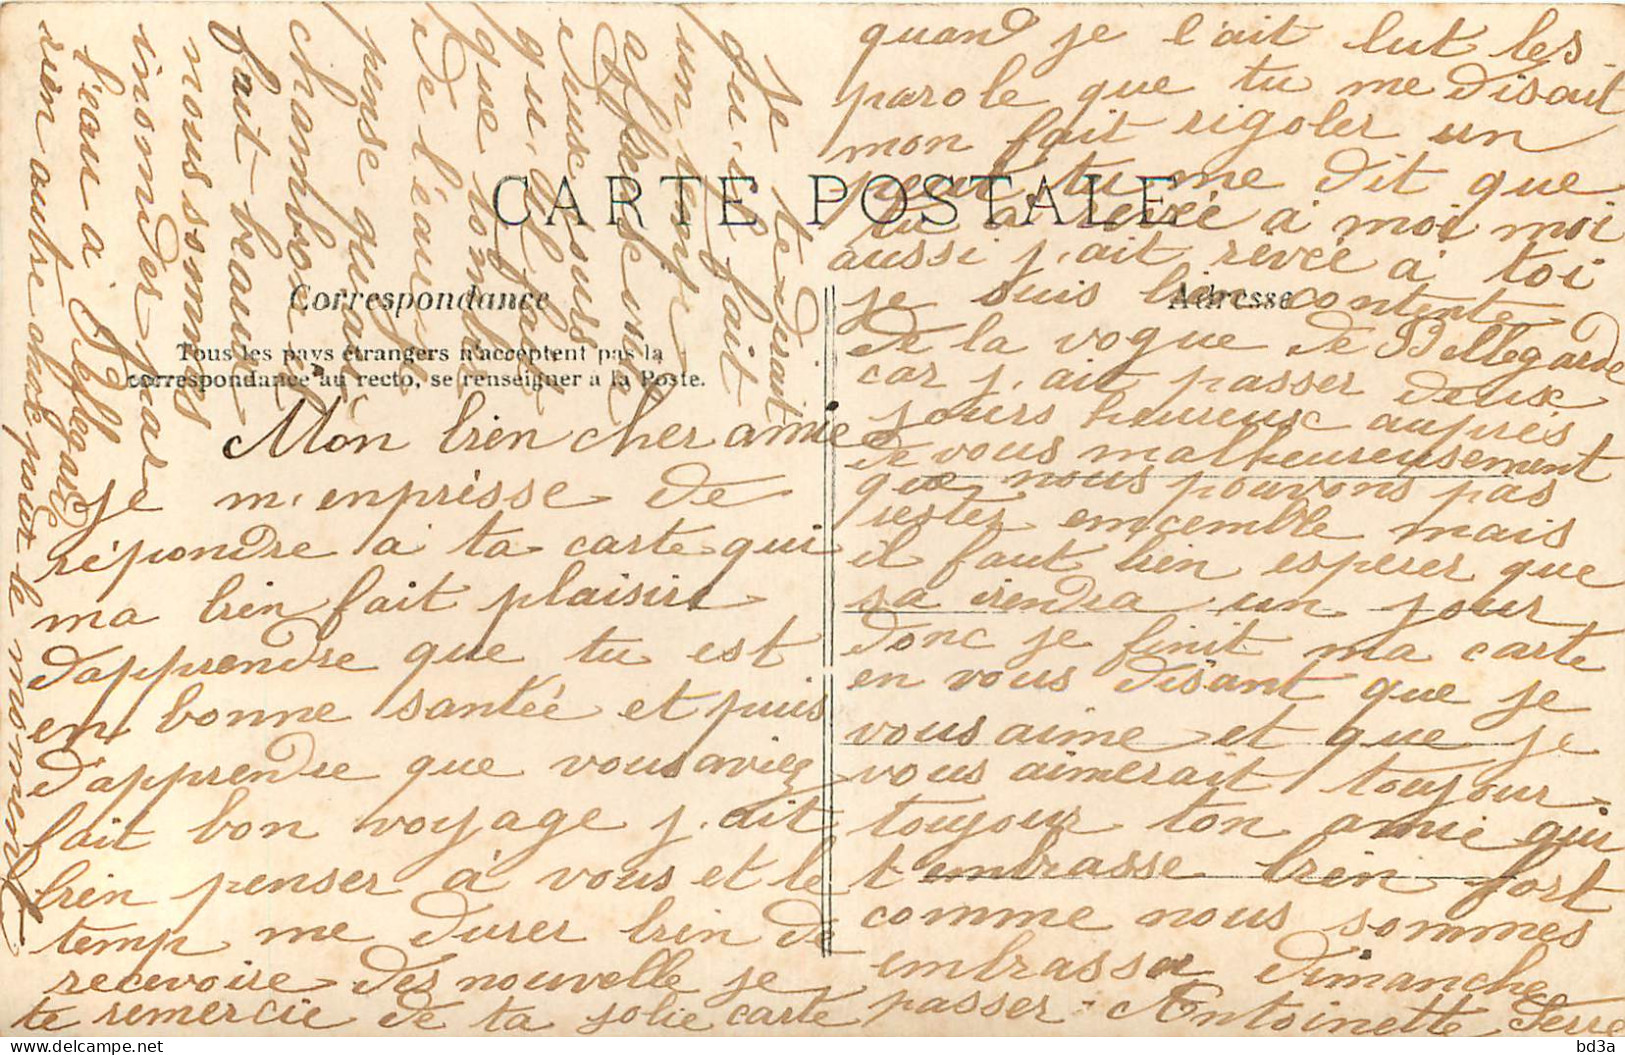 CARTE POSTALE
Correspondance
Adresse
Tous les pays étrangers n'acceptent pas la
correspondance au recto, se renseigner à la Poste.
Mon bien cher amie
je m'enprésse de
répondre a ta carte qui
ma bien fait plaisire
d'apprendre que tu est
en bonne santéé et puis
d'apprendre que vous aviez
fait bon voyage j.ait
bien penser à vous et le
temp me durer bien de
recevoire des nouvelle je
te remercie de ta jolie carte
quand je l'ait lut les
parole que tu me disait
mon fait rigoler un
peut tu me dit que
tu a revée a moi moi
aussi j.ait revée a toi
je suis bien contente
de la vogue de Bellegarde
car j.ait passer deux
jours heureux auprés
de vous malheureusement
que nous pouvons pas
rester emcemble mais
il faut bien esperer que
sa viendra un jour
donc je finit ma carte
en vous disant que je
vous aime et que je
vous aimerait toujour
toujour ton amie qui
t'embrasse bien fort
comme nous sommes
embrasser dimanche
passer Antoinette Serre
Je te dirait
qu'il fait
un temp
affreuse
que tombe
de l'eau je
pense qu'au
chambon il
fait beau
nous sommes
inonder par
l'eau a Bellegarde
rien autre chose pour le moment